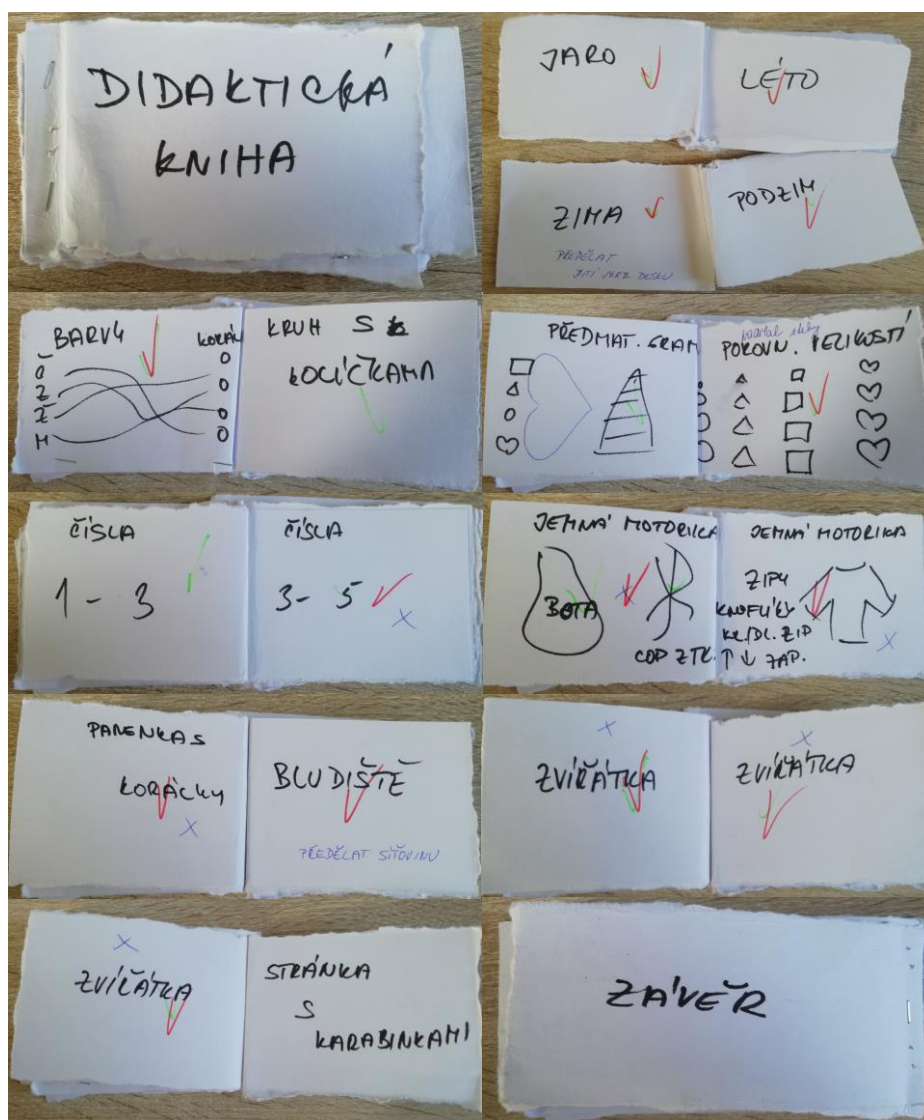 DIDAKTICKÁ
KNIHA
JARO
LÉTO
ZIMA
PŘEDĚLAT
PODZIM
BARVY
KORÁL
Č
Z
Ž
M
KRUH S
KOLÍČKAMA
PŘEDMAT. GRAM
POROVN. VELIKOSTÍ
ČÍSLA
1 - 3
ČÍSLA
3 - 5
JEMNÁ MOTORIKA
BOTA
COP ZTK.
JEMNÁ MOTORIKA
ZIPY
KNOFLÍKY
ZIP
↑ ↓ ZAP.
PANENKA S
KORÁLKY
BLUDIŠTĚ
PŘEDĚLAT SÍŤOVINU
ZVÍŘÁTKA
ZVÍŘÁTKA
ZVÍŘÁTKA
STRÁNKA
S
KARABINKAMI
ZÁVĚR